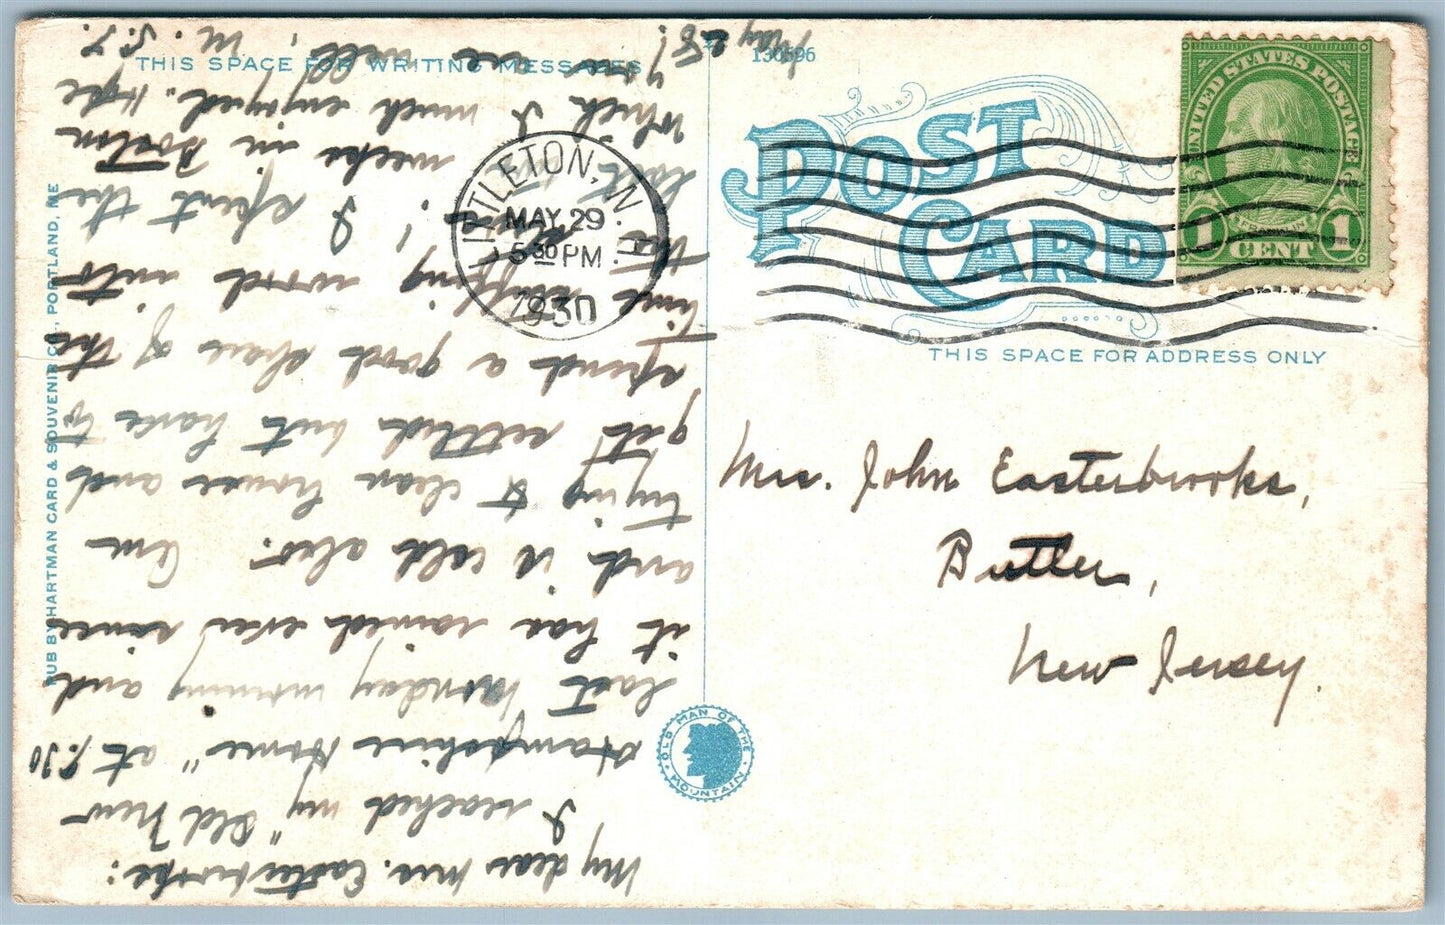 THIS SPACE FOR WRITING MESSAGES
130696
POST CARD
THIS SPACE FOR ADDRESS ONLY
UNITED STATES POSTAGE
FRANKLIN
1 CENT 1
LITTLETON, N.H.
MAY 29
5 30 PM
1930
PUB BY HARTMAN CARD & SOUVENIR CO., PORTLAND, ME
OLD MAN OF THE MOUNTAIN
Mrs. John Easterbrooks,
Butler,
New Jersey.
May 28!
My dear Mrs. Easterbrooks:
I reached my "Old New
Hampshire Home" at 1:30
last Sunday morning and
it has rained ever since
and is cold also. Am
trying to clean house and
get settled but have to
spend a good share of the
time stuffing wood into
the ! I spent the
last weeks in Boston
which I much enjoyed. Hope
you are well. M. S. T.